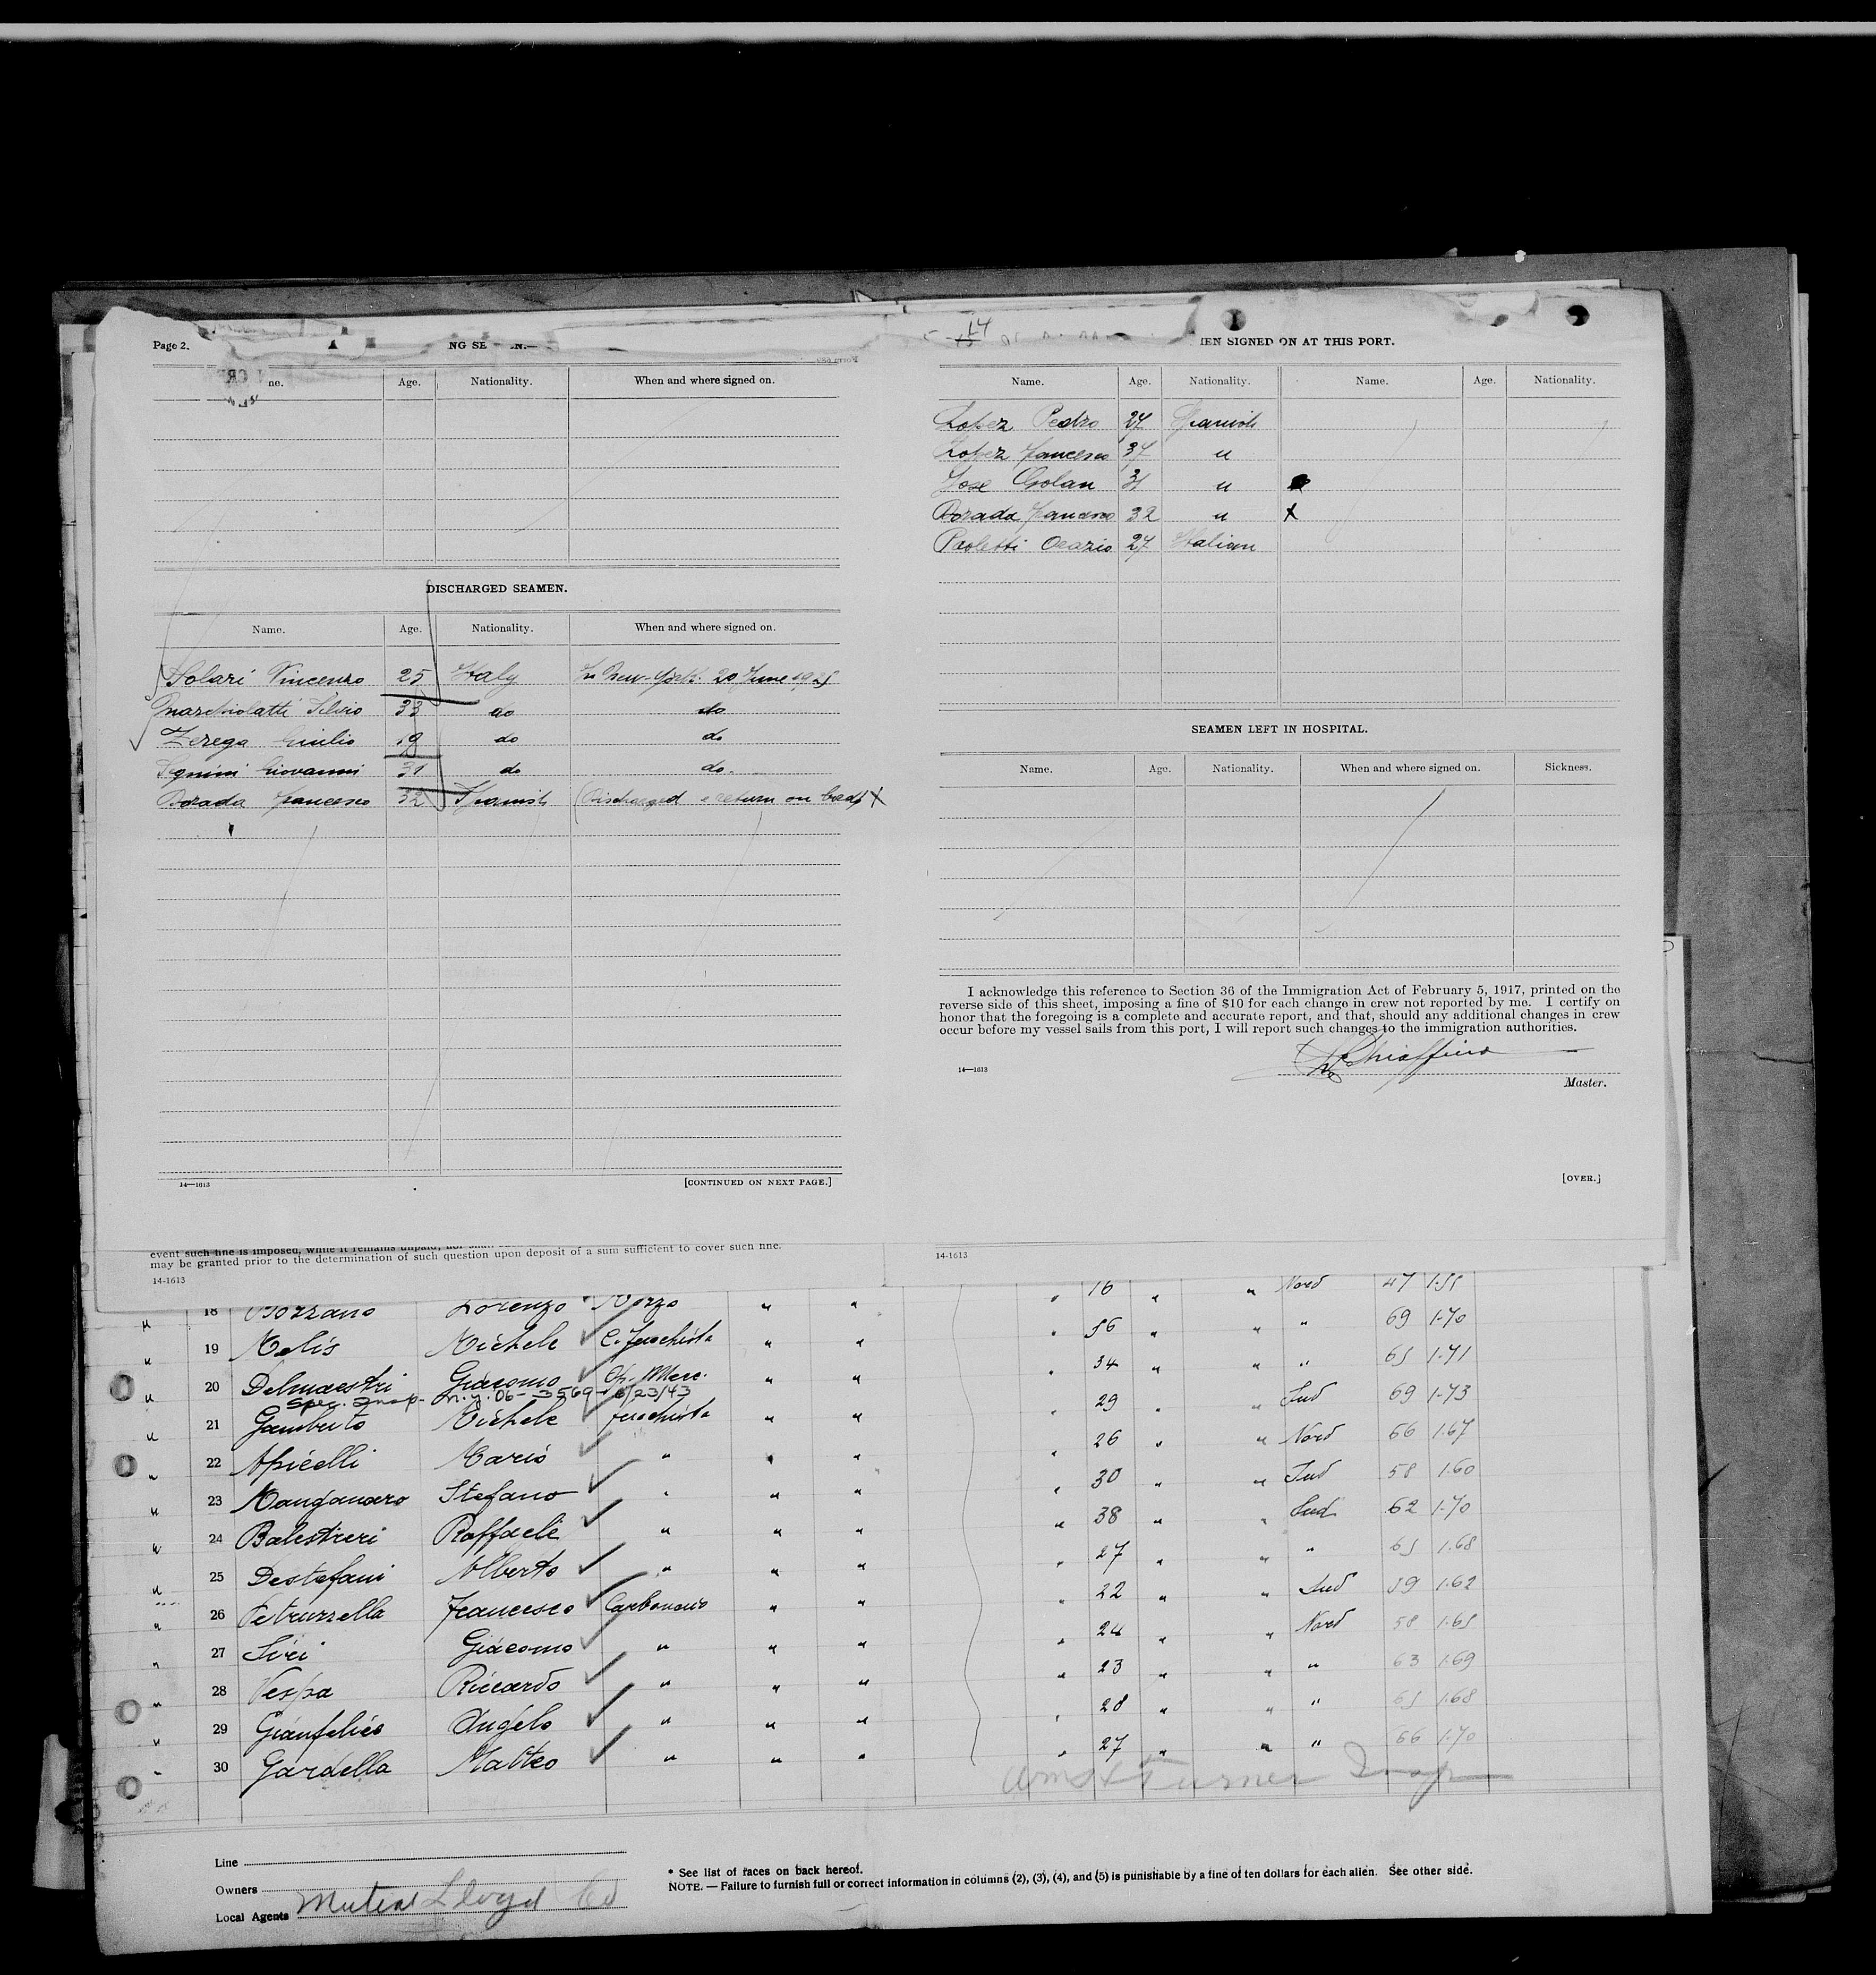 Page 2.
NG SE
Name. Age. Nationality. When and where signed on.
DISCHARGED SEAMEN.
Name. Age. Nationality. When and where signed on.
Solari Vincenzo 25 Italy In New-York 20 June 1925
Marchiolatti Silvio 33 do do
Zerega Giulio 19 do do
Segnini Giovanni 31 do do.
Dorada Francesco 32 Spanish (Discharged e return on board) X
14—1613 [CONTINUED ON NEXT PAGE.]
14
IEN SIGNED ON AT THIS PORT.
Name. Age. Nationality. Name. Age. Nationality.
Lopez Pedro 27 Spanish
Lopez Francesco 37 "
Jose Golan 31 "
Dorada Francesco 32 " X
Paoletti Orazio 27 Italian
SEAMEN LEFT IN HOSPITAL.
Name. Age. Nationality. When and where signed on. Sickness.
I acknowledge this reference to Section 36 of the Immigration Act of February 5, 1917, printed on the
reverse side of this sheet, imposing a fine of $10 for each change in crew not reported by me. I certify on
honor that the foregoing is a complete and accurate report, and that, should any additional changes in crew
occur before my vessel sails from this port, I will report such changes to the immigration authorities.
Schiaffino
14—1613
Master.
[OVER.]
event such fine is imposed, while it remains unpaid, nor shall
may be granted prior to the determination of such question upon deposit of a sum sufficient to cover such fine.
14-1613
14-1613
18 Bozzano Lorenzo Mozzo " " 16 " " Nord 47 1.55
" 19 Melis Michele C. fuochista " " 56 " " " 69 1.70
" 20 Delmaestri Giacomo Op. Mecc. " " 34 " " " 65 1.71
Spec. Insp. N.Y. 06-3569- 6/23/43
" 21 Gamberto Michele fuochista " " 29 " " Sud 69 1.73
" 22 Apicelli Mario " " " 26 " " Nord 56 1.67
" 23 Manganaro Stefano " " " 30 " " Sud 58 1.60
" 24 Balestreri Raffaele " " " 38 " " Sud 62 1.70
" 25 Destefani Alberto " " " 27 " " " 65 1.68
" 26 Petruzzella Francesco Carbonaio " " 22 " " Sud 59 1.62
" 27 Siri Giacomo " " " 24 " " Nord 58 1.65
" 28 Vespa Riccardo " " " 23 " " " 63 1.69
" 29 Gianfelici Angelo " " " 28 " " " 65 1.68
" 30 Gardella Matteo " " " 27 " " " 66 1.70
Turner Insp
Line
Owners
Local Agents Mutual Lloyd Co
* See list of races on back hereof.
NOTE. — Failure to furnish full or correct information in columns (2), (3), (4), and (5) is punishable by a fine of ten dollars for each alien. See other side.